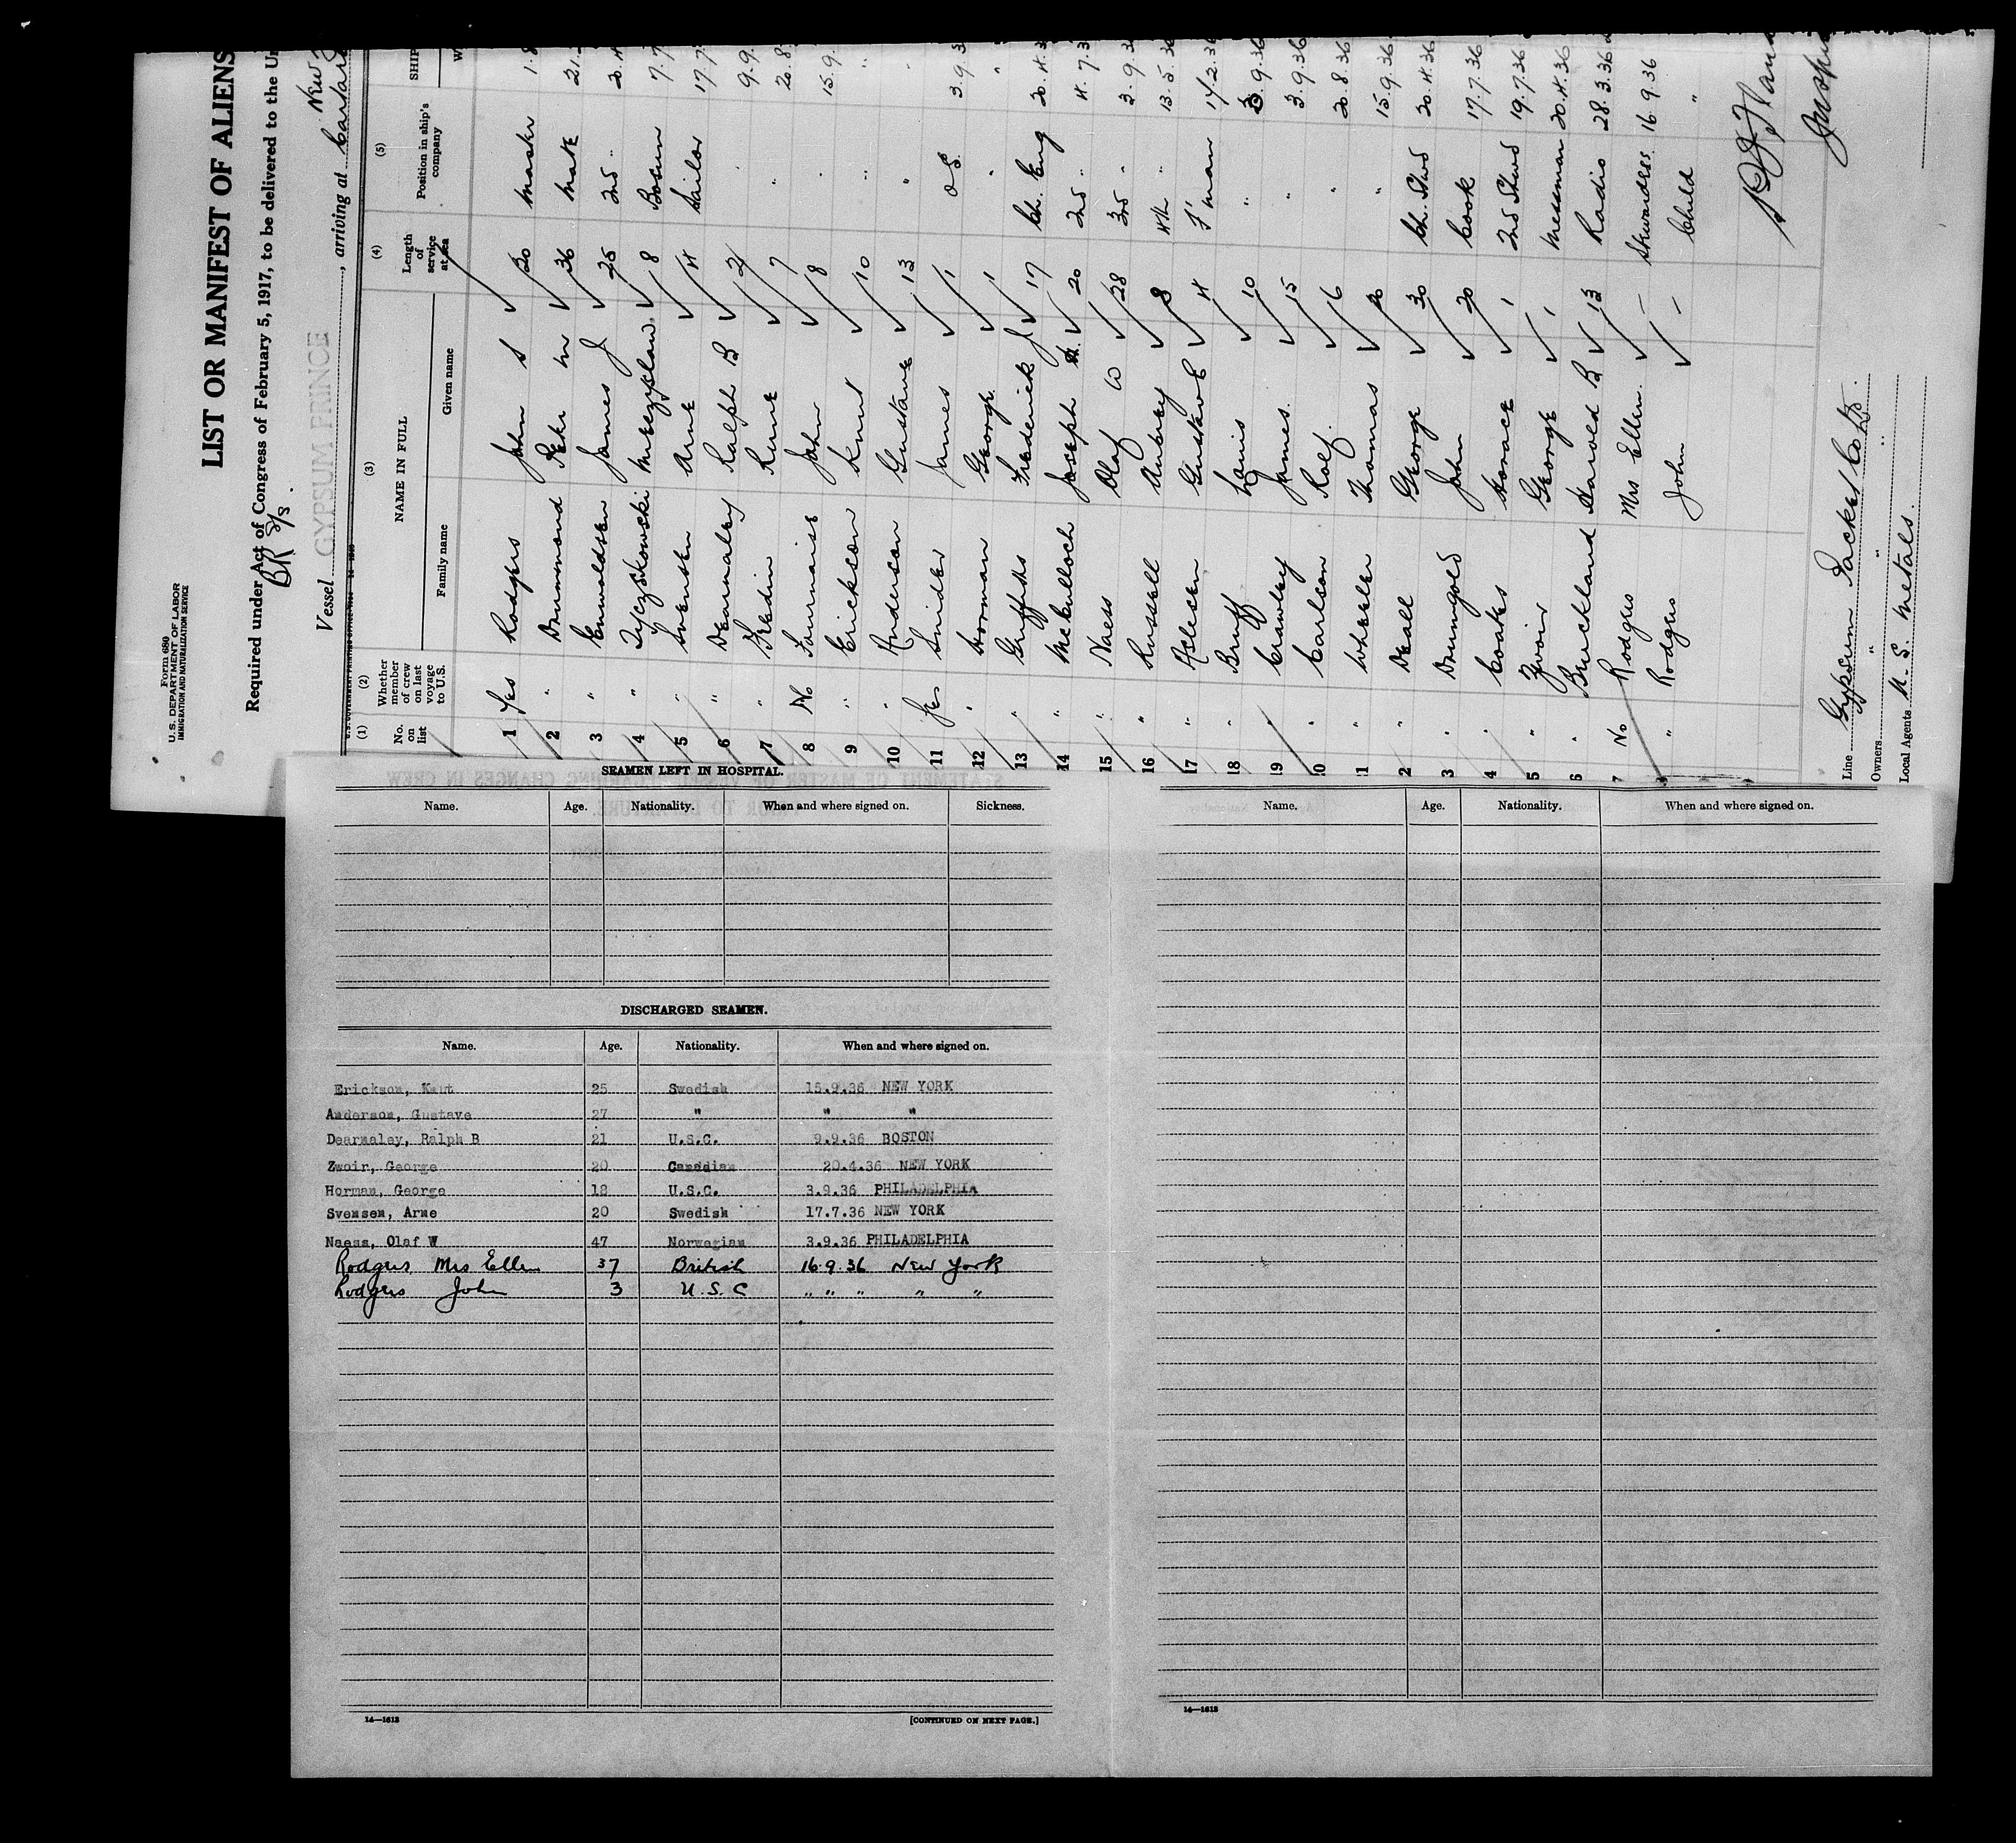 Form 680
U.S. DEPARTMENT OF LABOR
IMMIGRATION AND NATURALIZATION SERVICE
LIST OR MANIFEST OF ALIENS
Required under Act of Congress of February 5, 1917, to be delivered to the Un
BR S/S.
Vessel GYPSUM PRINCE, arriving at New
(1) (2) (3) (4) (5)
No. on list Whether member of crew on last voyage to U.S. NAME IN FULL Length of service at sea Position in ship's company SHIP
Family name Given name W
1 Yes Rodgers John S 30 Master 1.8
2 " Drummond Peter W 36 Mate 21.
3 " Enwoldsen James J 25 2nd " 20.4
4 " Tyczkowski Mieczyslaw 8 Bosun 7.7
5 " Svensen Arne 4 Sailor 17.7
6 " Dearnaley Ralph B 2 " 9.9.
7 " Fredin Rune 7 " 20.8
8 No Tourmaise John 8 " 15.9.
9 " Erickson Knut 10 " "
10 " Anderson Gustave 13 " "
11 Yes Snider James 1 OS 3.9.3
12 " Horman George 1 " "
13 " Griffiths Frederick J 17 Ch. Eng 20.4.3
14 " McCulloch Joseph H. 20 2nd " 4.7.3
15 " Naess Olaf W 28 3rd " 3.9.3
16 " Russell Aubrey 8 4th " 13.5.36
17 " Aslesen Gustav E 4 F'man 14.2.36
18 " Bruff Louis 10 " 3.9.36
19 " Crawley James. 15 " 3.9.36
0 " Carlson Rolf. 6 " 20.8.36
1 " Wheeler Thomas 20 " 15.9.36
2 " Deall George 30 Ch. Stwd 20.4.36
3 " Drumgold John 20 Cook 17.7.36
4 " Coakes Horace 1 2nd Stwd 19.7.36
5 " Zwoir George 1 Messman 20.4.36
6 " Buckland Harold B 13 Radio 28.3.36
7 No Rodgers Mrs Ellen. – Stewardess 16.9.36
8 " Rodgers John – Child "
Line Gypsum Packet Co Ltd.
Owners " " "
Local Agents U. S. Metals.
SEAMEN LEFT IN HOSPITAL.
Name. Age. Nationality. When and where signed on. Sickness.
DISCHARGED SEAMEN.
Name. Age. Nationality. When and where signed on.
Erickson, Knut 25 Swedish 15.9.36 NEW YORK
Anderson, Gustave 27 " " "
Dearnaley, Ralph B 21 U.S.C. 9.9.36 BOSTON
Zwoir, George 20 Canadian 20.4.36 NEW YORK
Horman, George 18 U.S.C. 3.9.36 PHILADELPHIA
Svensen, Arne 20 Swedish 17.7.36 NEW YORK
Naess, Olaf W 47 Norwegian 3.9.36 PHILADELPHIA
Rodgers Mrs Ellen 37 British 16.9.36 New York
Rodgers John 3 U.S.C " " " " "
14—1613 [CONTINUED ON NEXT PAGE.]
Name. Age. Nationality. When and where signed on.
14—1613